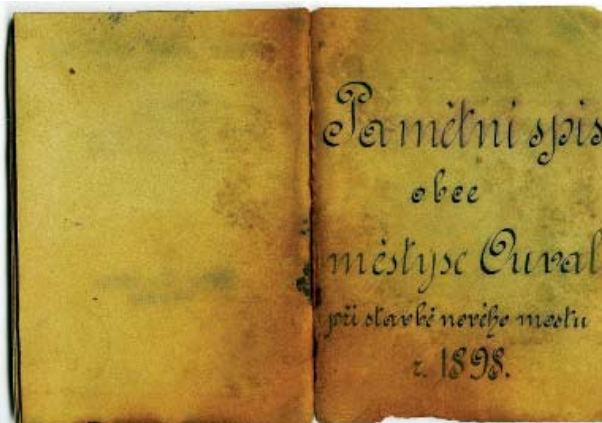 Pamětní spis
obce
městyse Ouval
při stavbě nového mostu
r. 1898.